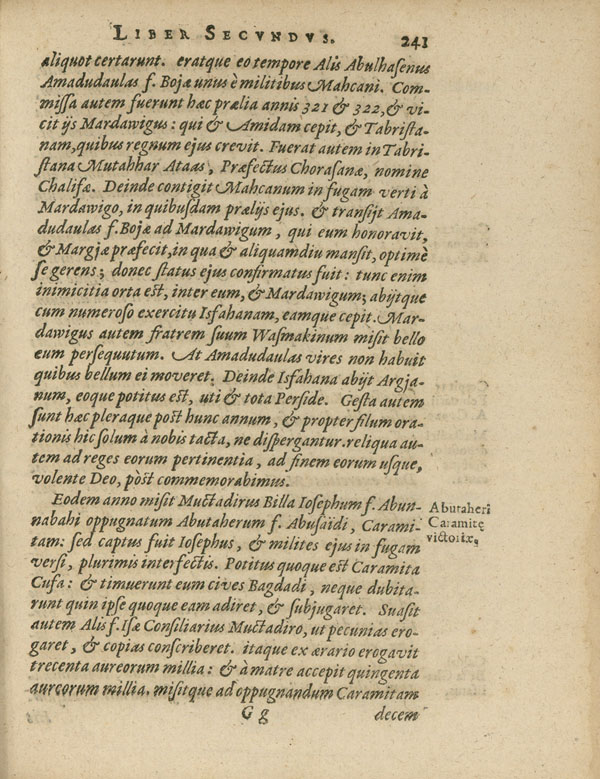 LIBER SECVNDVS. 241
aliquot certarunt. eratque eo tempore Alis Abulhasenus
Amadudaulas f. Bojæ unus è militibus Mahcani. Com-
missa autem fuerunt hæc prælia annis 321 & 322, & vi-
cit ijs Mardawigus: qui & Amidam cepit, & Tabrista-
nam, quibus regnum ejus crevit. Fuerat autem in Tabri-
stana Mutahhar Ataas, Præfectus Chorasanæ, nomine
Chalifæ. Deinde contigit Mahcanum in fugam verti à
Mardawigo, in quibusdam prælijs ejus. & transijt Ama-
dudaulas f. Bojæ ad Mardawigum, qui eum honoravit,
& Margjæ præfecit, in qua & aliquamdiu mansit, optimè
se gerens; donec status ejus confirmatus fuit: tunc enim
inimicitia orta est, inter eum, & Mardawigum; abijtque
cum numeroso exercitu Isfahanam, eamque cepit. Mar-
dawigus autem fratrem suum Wasmakinum misit bello
eum persequutum. At Amadudaulas vires non habuit
quibus bellum ei moveret. Deinde Isfahana abijt Argja-
num, eoque potitus est, uti & tota Perside. Gesta autem
sunt hæc pleraque post hunc annum, & propter filum ora-
tionis hic solum à nobis tacta, ne dispergantur. reliqua au-
tem ad reges eorum pertinentia, ad finem eorum usque,
volente Deo, pòst commemorabimus.
Eodem anno misit Muctadirus Billa Iosephum f. Abun-
nabahi oppugnatum Abutaherum f. Abusaidi, Carami-
tam: sed captus fuit Iosephus, & milites ejus in fugam
versi, plurimis interfectis. Potitus quoque est Caramita
Cufa: & timuerunt eum cives Bagdadi, neque dubita-
runt quin ipse quoque eam adiret, & subjugaret. Suasit
autem Alis f. Isæ Consiliarius Muctadiro, ut pecunias ero-
garet, & copias conscriberet. itaque ex ærario erogavit
trecenta aureorum millia: & à matre accepit quingenta
aureorum millia. misitque ad oppugnandum Caramitam
G g decem
Abutaheri
Caramitę
victoriæ.